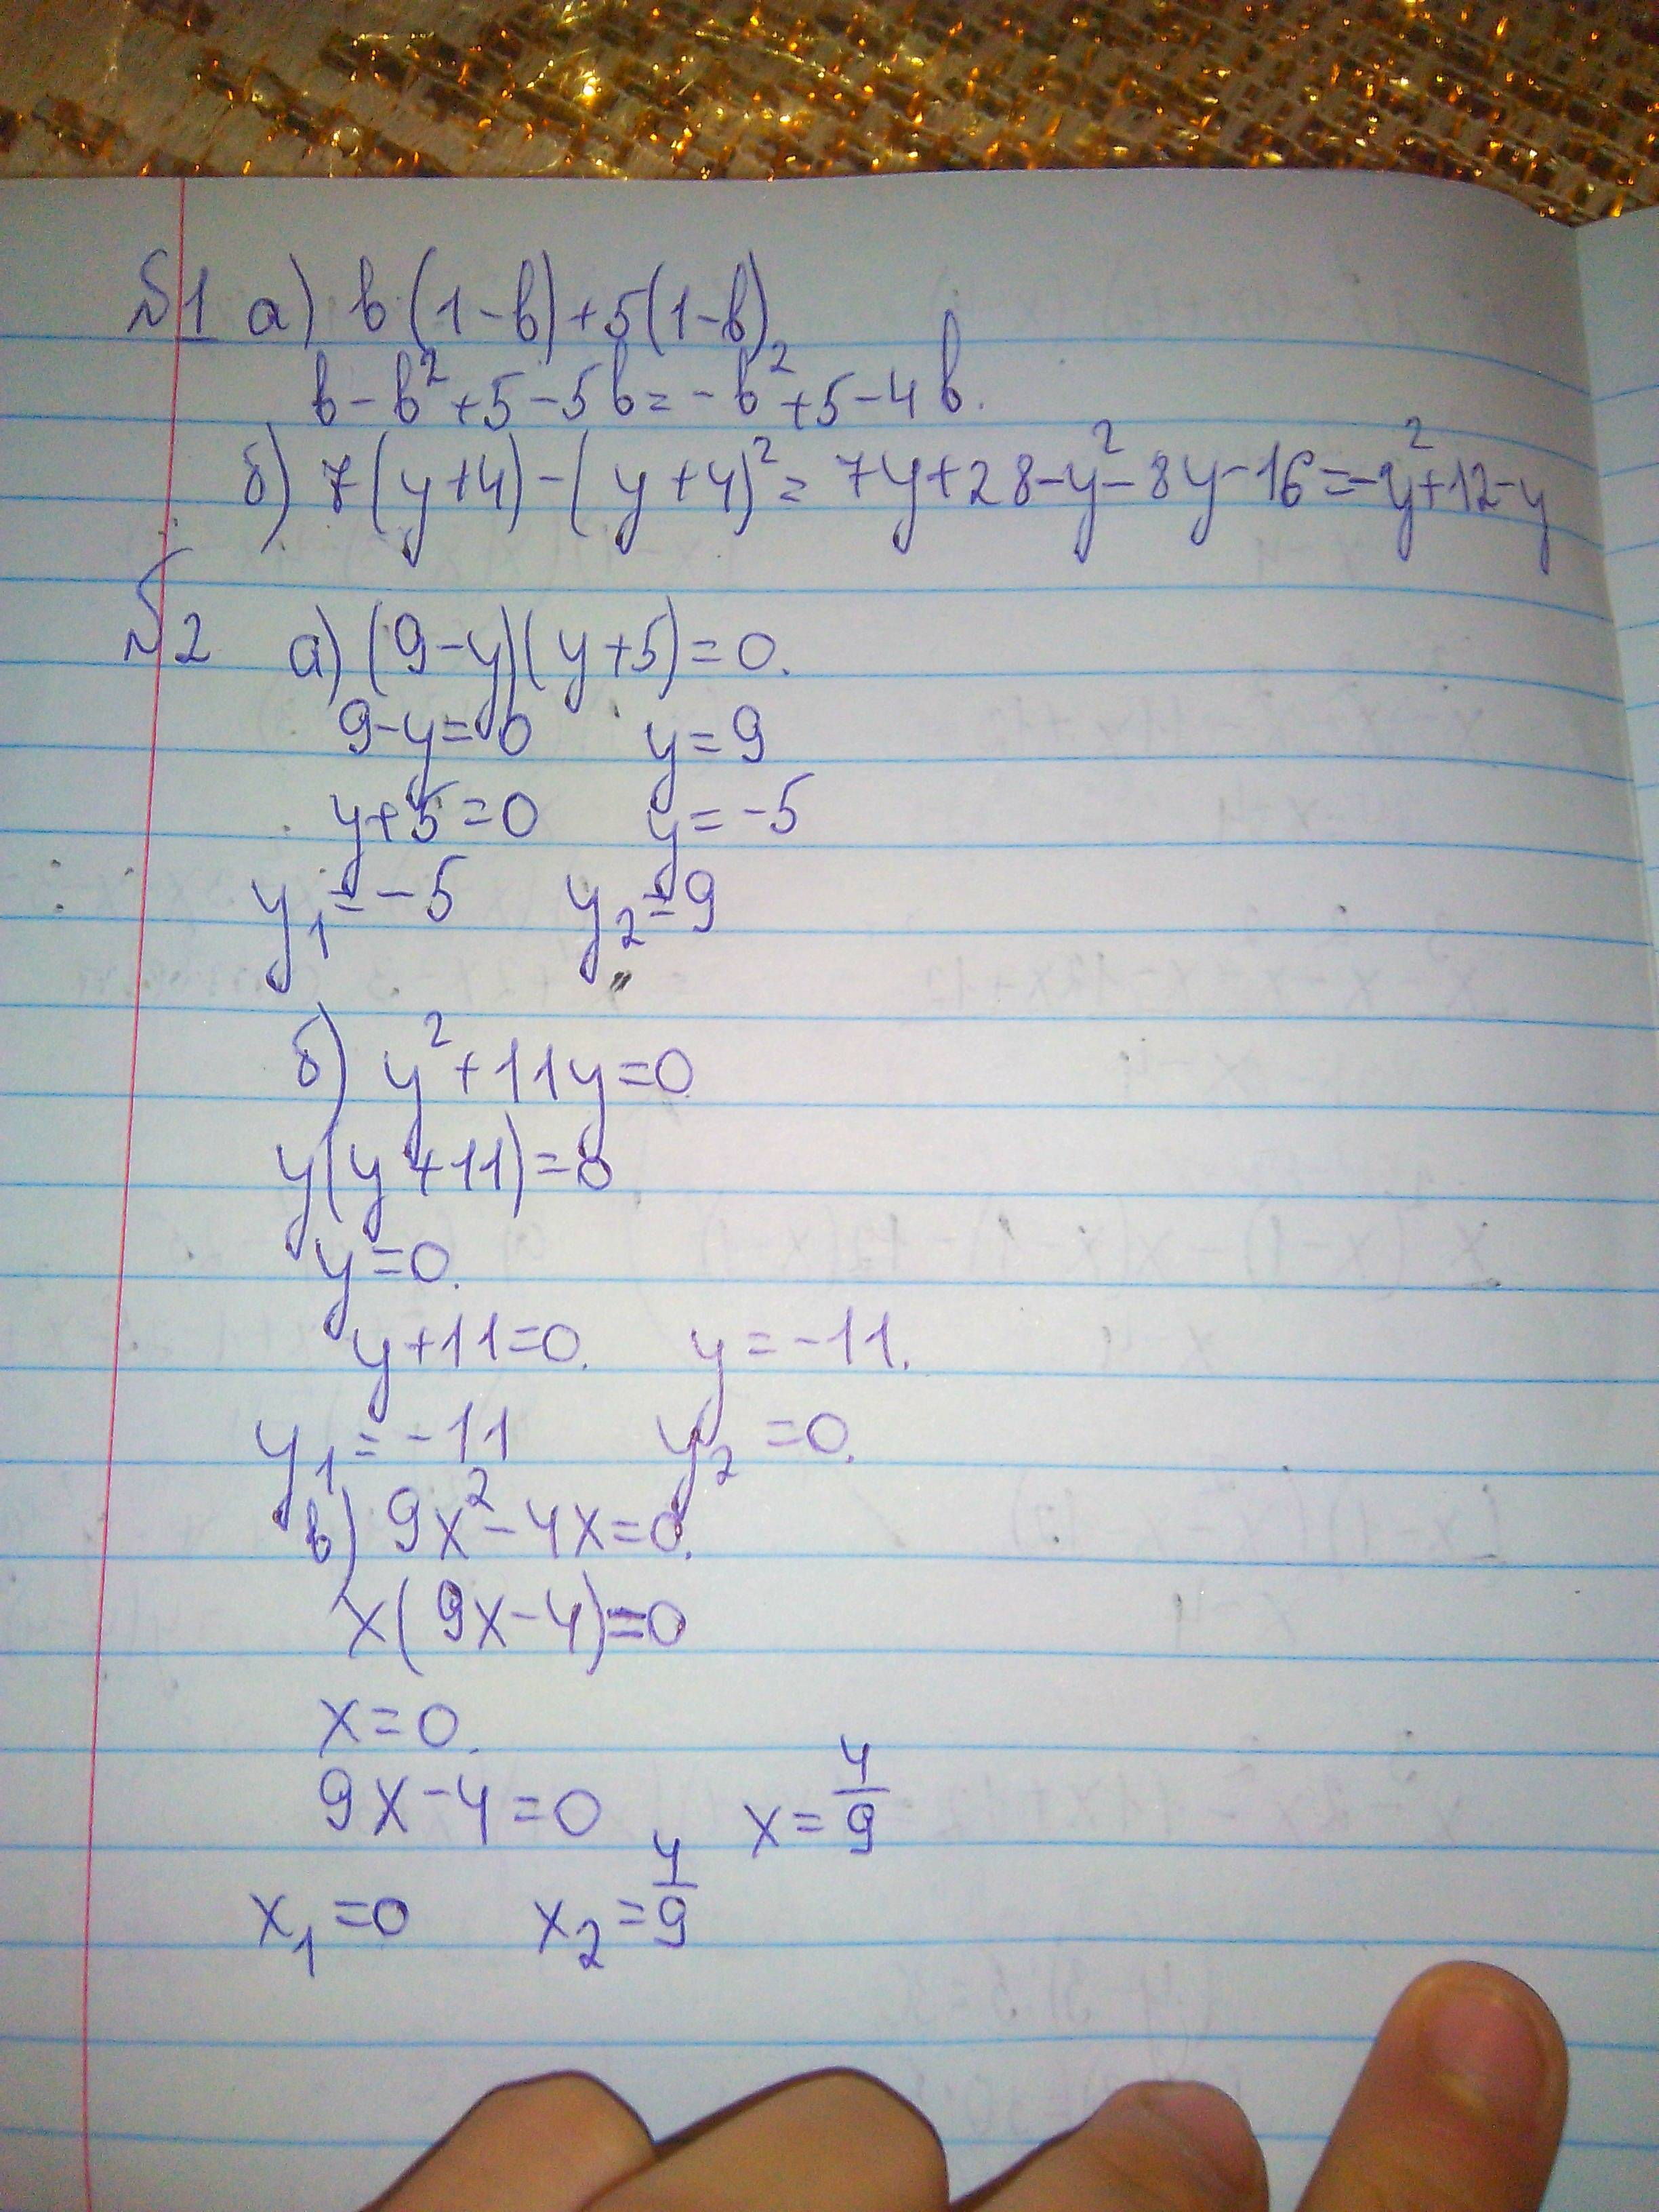 №1 а) b(1-b)+5(1-b)
b-b²+5-5b=-b²+5-4b.
б) 7(y+4)-(y+4)²=7y+28-y²-8y-16=-y²+12-y
№2 а) (9-y)(y+5)=0.
9-y=0 y=9
y+5=0 y=-5
y₁=-5 y₂=9
б) y²+11y=0
y(y+11)=0
y=0.
y+11=0. y=-11.
y₁=-11 y₂=0.
в) 9x²-4x=0.
x(9x-4)=0
x=0.
9x-4=0 x=4/9
x₁=0 x₂=4/9